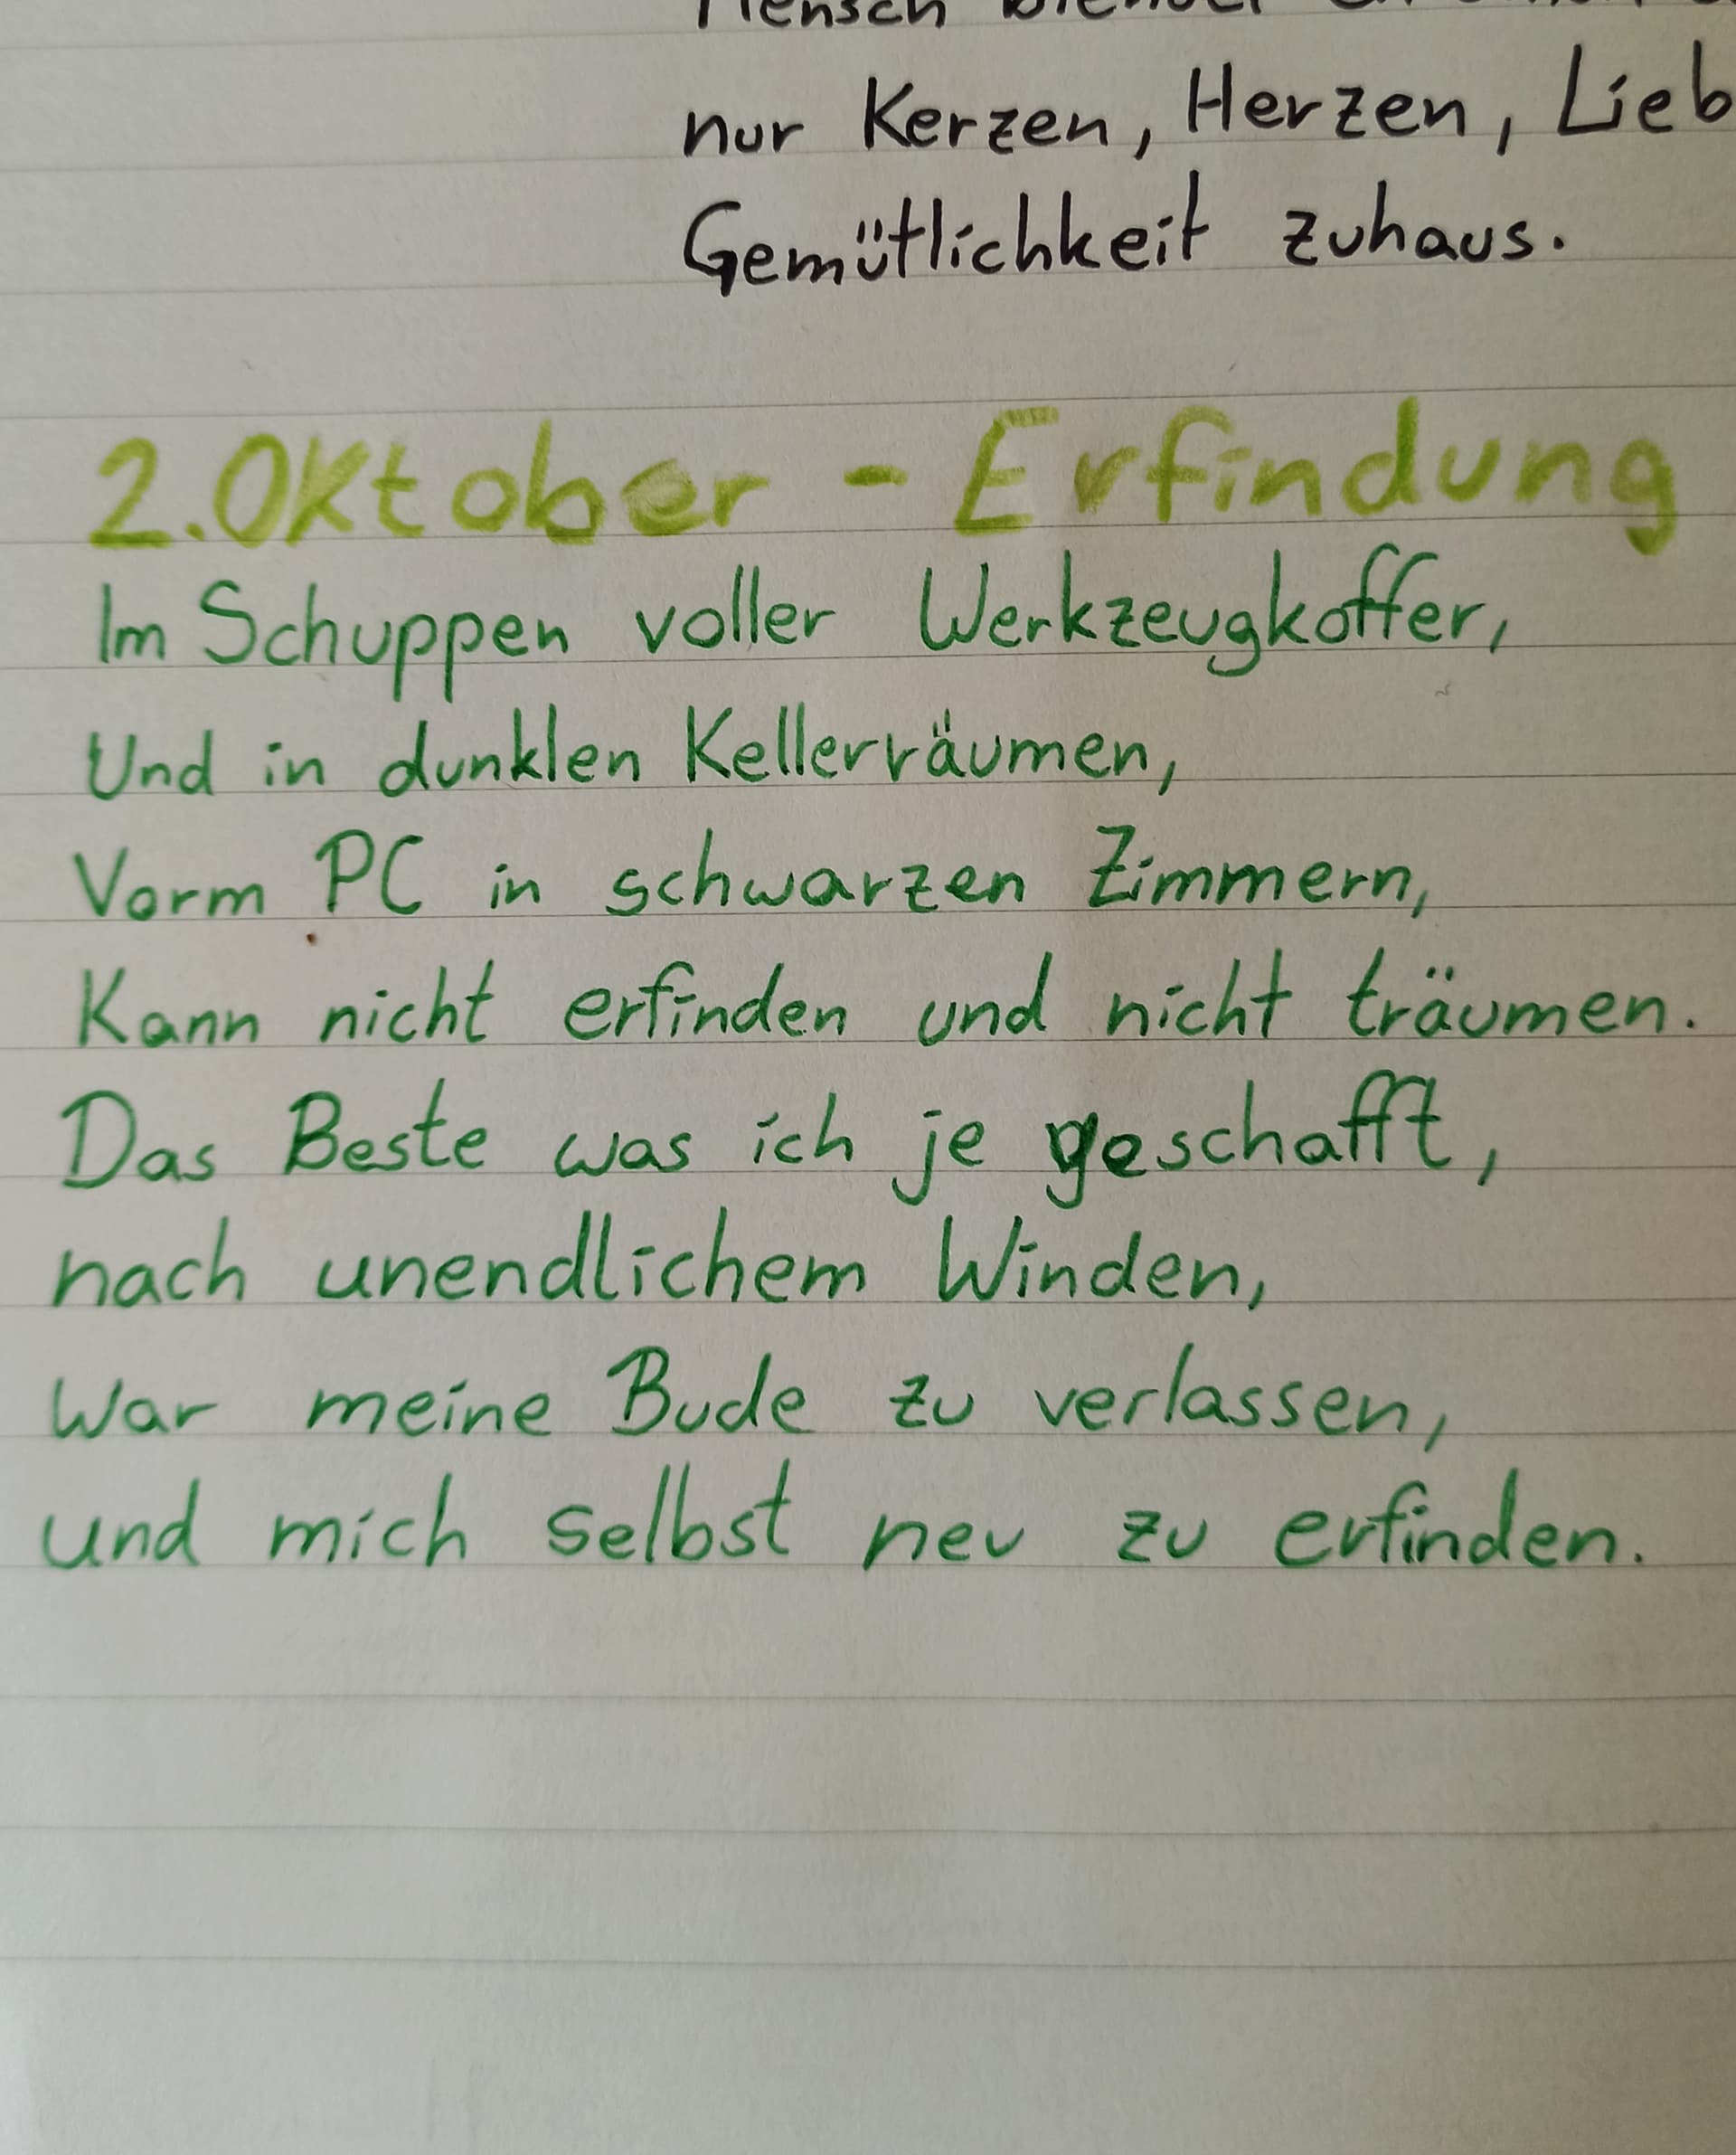 Mensch
nur Kerzen, Herzen, Lieb
Gemütlichkeit zuhaus.
2. Oktober - Erfindung
Im Schuppen voller Werkzeugkoffer,
Und in dunklen Kellerräumen,
Vorm PC in schwarzen Zimmern,
Kann nicht erfinden und nicht träumen.
Das Beste was ich je geschafft,
nach unendlichem Winden,
War meine Bude zu verlassen,
und mich selbst neu zu erfinden.